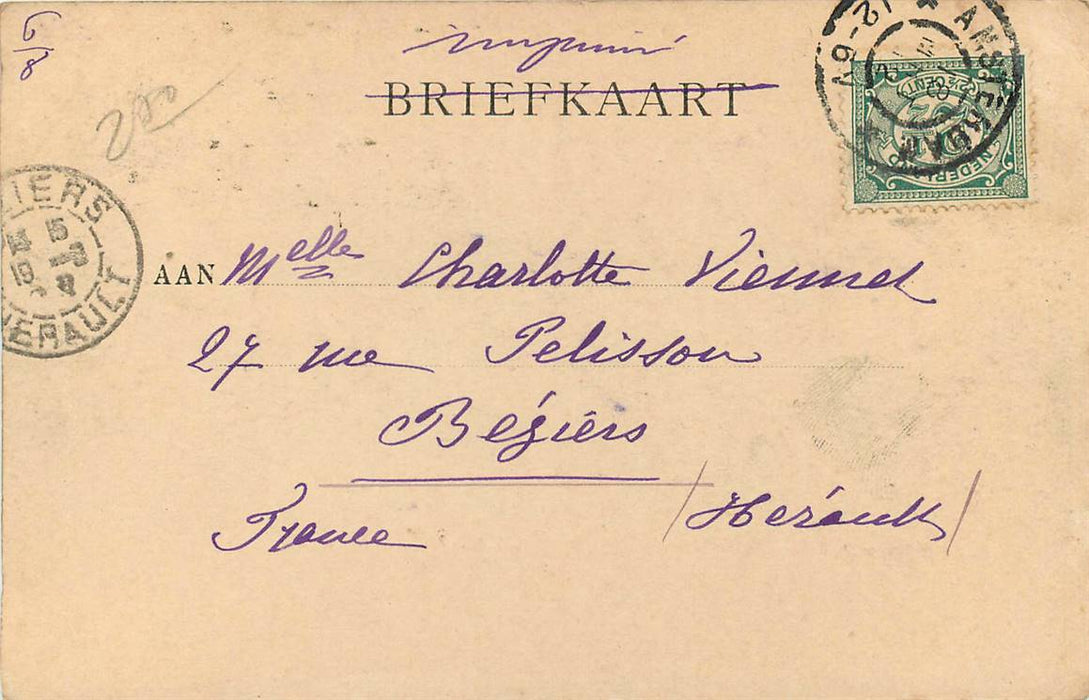 6/8
280
imprimé
BRIEFKAART
AMSTERDAM
12-6N
2½ CENT
NEDERL
IERS
HERAULT
AAN Melle Charlotte Viennet
27 rue Pelisson
Béziers
France (Herault)